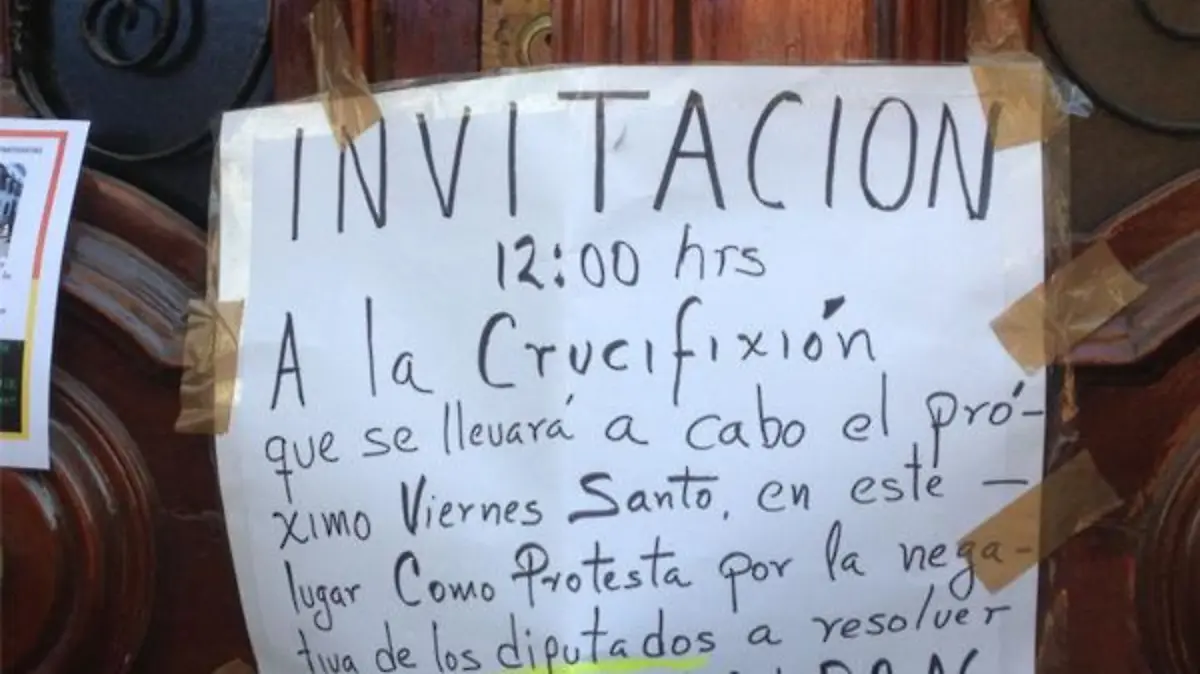 INVITACION
12:00 hrs
A la Crucifixión
que se llevará a cabo el pró-
ximo Viernes Santo, en este -
lugar Como Protesta por la nega-
tiva de los diputados a resolver